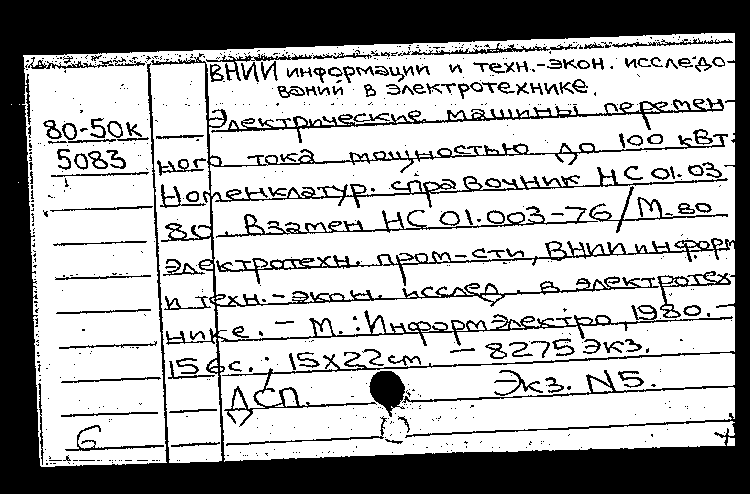 ВНИИ информации и техн.-экон. исследо-
ваний в электротехнике.
80-50к
Электрические машины перемен-
5083
ного тока мощностью до 100 кВт.
Номенклатур. справочник НС 01.03-
80. Взамен НС 01.003-76/М-во
электротехн. пром-сти, ВНИИ информ
и техн.-экон. исслед. в электротех-
нике. – М.: Информэлектро, 1980. –
156с.; 15х22см. – 8275 экз.
ДСП. Экз. N5.
6